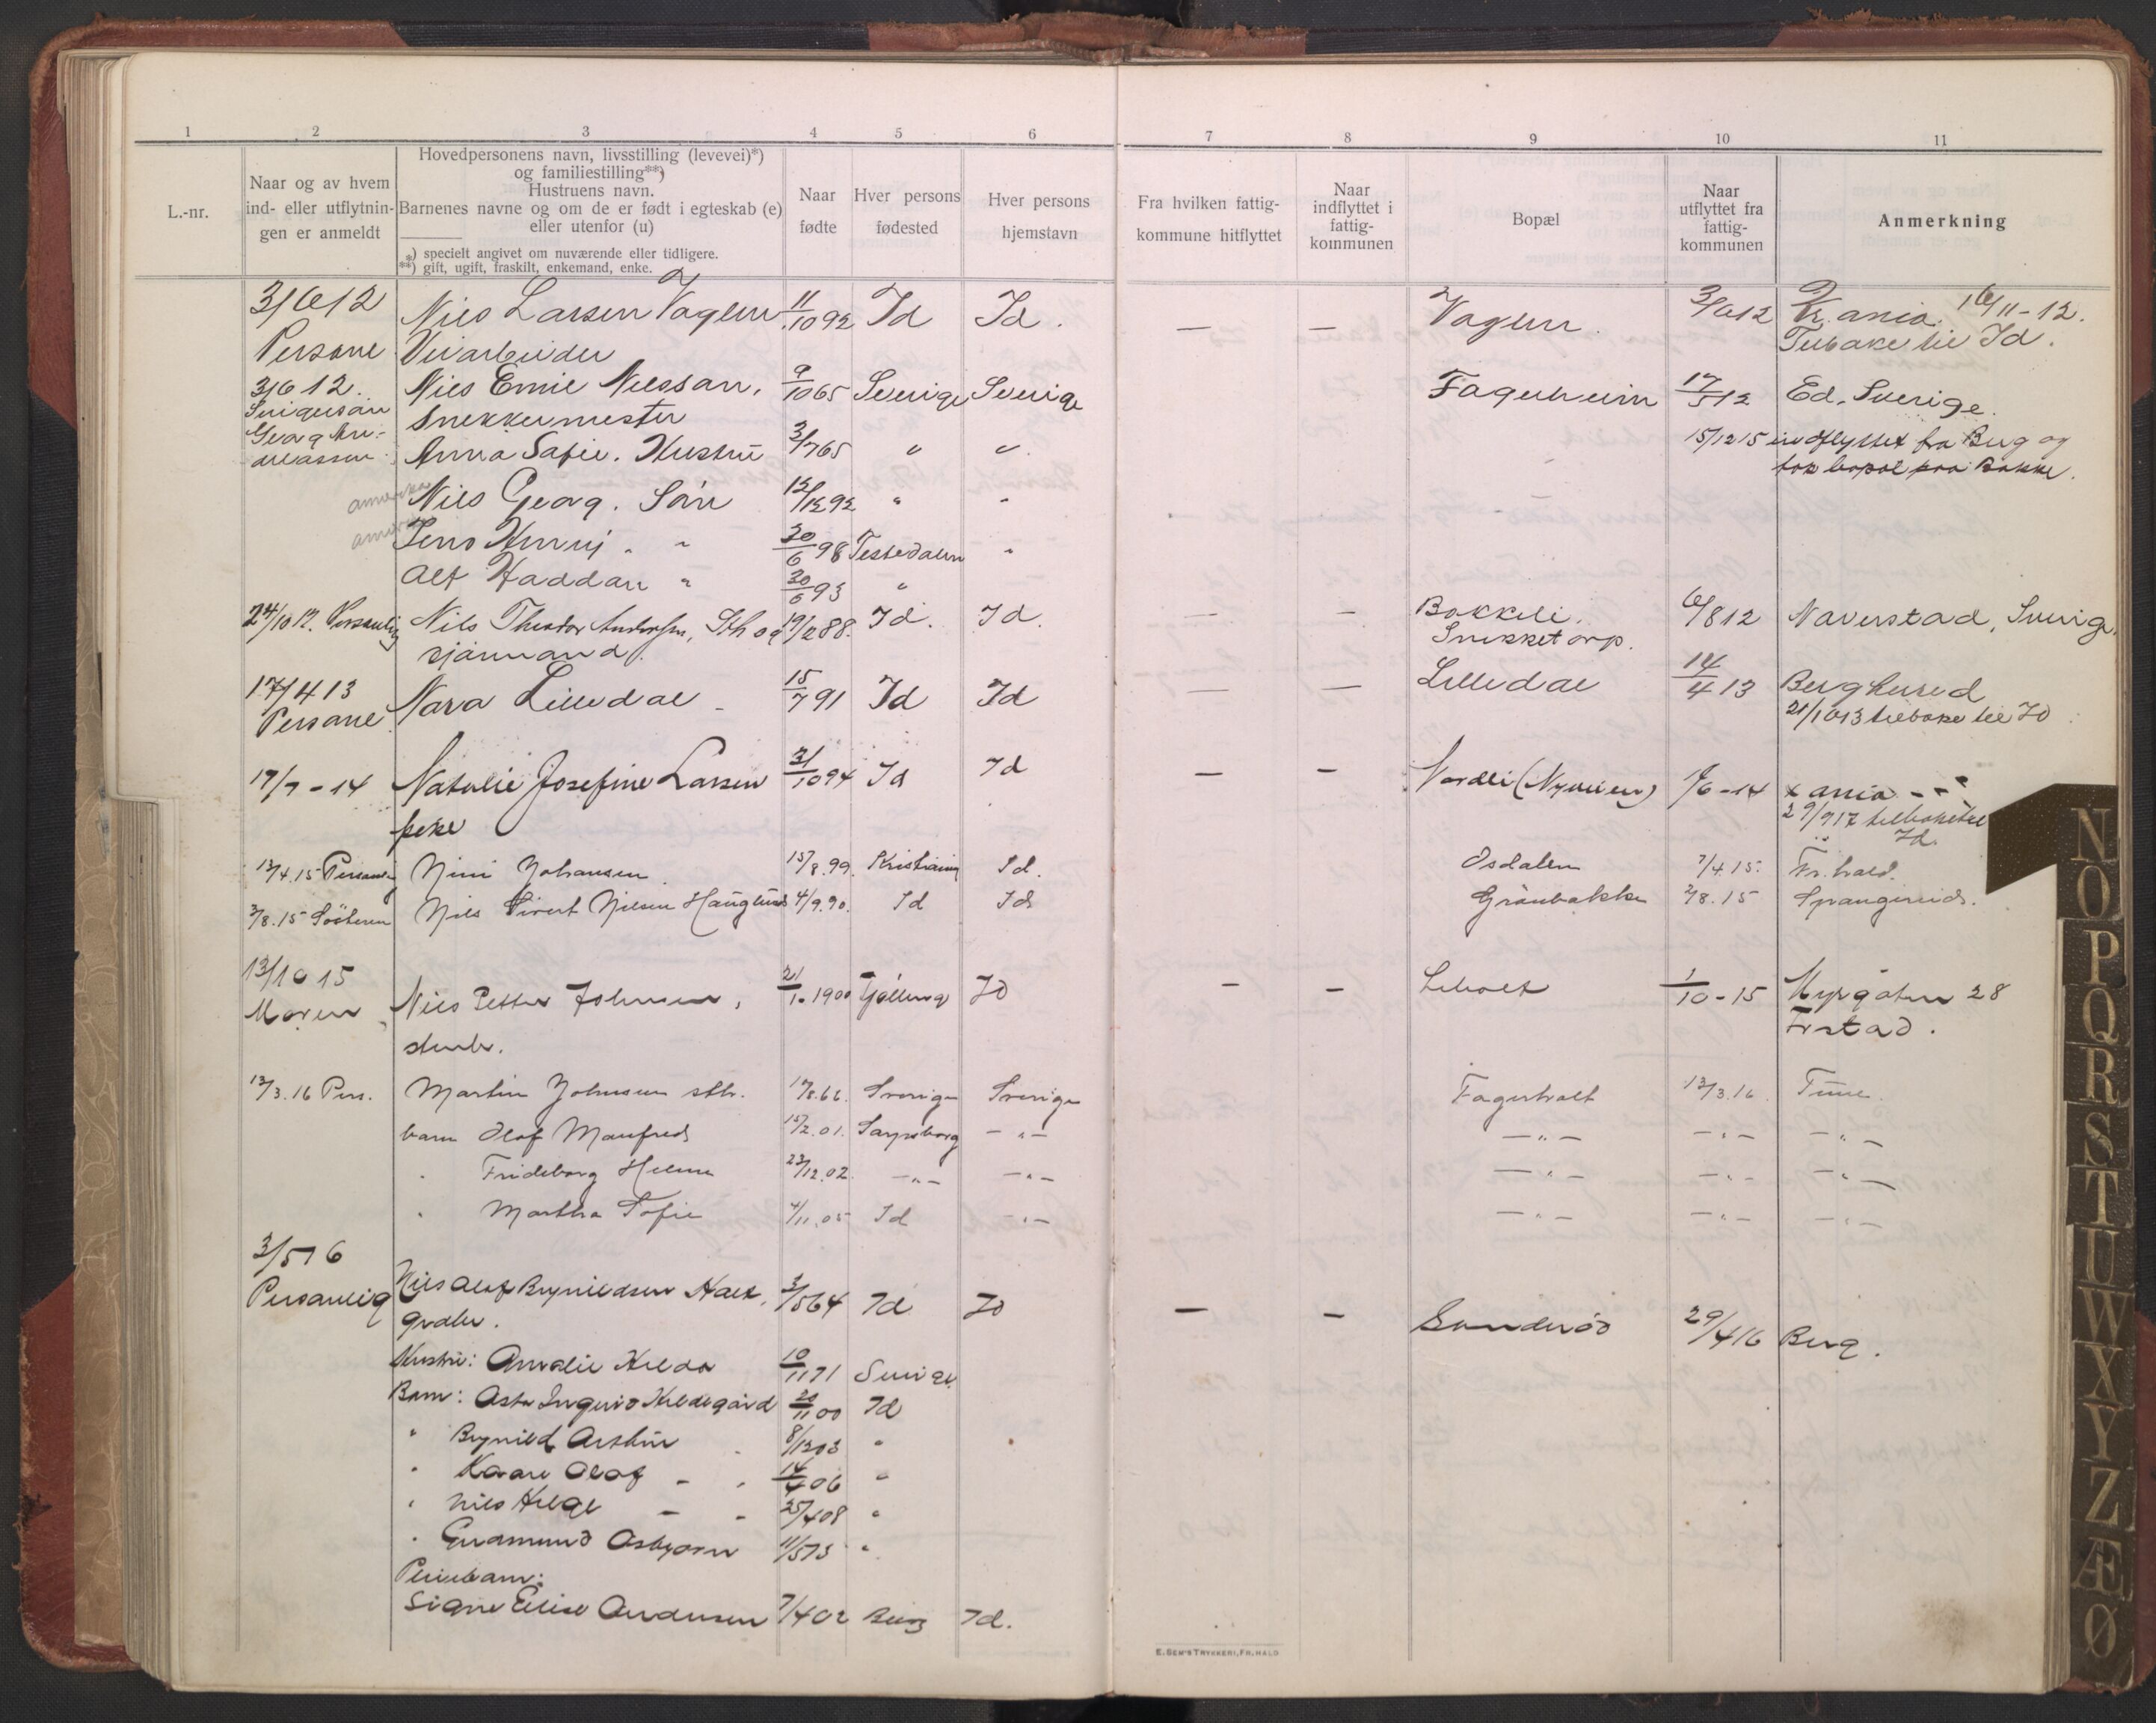 1 2 3 4 5 6 7 8 9 10 11
L.-nr.
Naar og av hvem
ind- eller utflytnin-
gen er anmeldt
Hovedpersonens navn, livsstilling (levevei)*)
og familiestilling**)
Hustruens navn.
Barnenes navne og om de er født i egteskab (e)
eller utenfor (u)
*) specielt angivet om nuværende eller tidligere.
**) gift, ugift, fraskilt, enkemand, enke.
Naar
fødte
Hver persons
fødested
Hver persons
hjemstavn
Fra hvilken fattig-
kommune hitflyttet
Naar
indflyttet i
fattig-
kommunen
Bopæl
Naar
utflyttet fra
fattig-
kommunen
Anmerkning
3/6 12 Nils Larsen Vaglen 11/10 92 Id Id. — — Vaglen. 3/6 12 Kr.ania. 16/11-12.
Veiarbeider Tilbake til Id.
3/6 12. Nils Emil Nilssan, 9/10 65 Sverige Sverige Fagerheim 17/5 12 Ed. Sverige.
Snekkermester
Anna Sofie. Hustru 3/7 65 " " 15/12 15 indflyttet fra Berg og
tok bopæl paa Bakke.
amerika Nils Georg. Sön 12/12 92 " "
amerika Jens Henrij " " 30/6 98 Tistedalen "
Alf Haddan " "
24/10 12. Personlig Nils Theodor Andersen, Sth og 19/2 88. Id. Id. — — Bakkeli. 6/8 12 Naverstad, Sverige.
sjömand. Snekketorp.
17/4 13 Nara Lilledal 15/7 91 Id Id — — Lilledal 14/4 13
21/10 13 tilbake til Id
17/7-14 Natalie Josefine Larsen 31/10 94 Id Id — — Nordli (Nyveien) 1/6-14 x ania - - "
pike 29/9 17 tilbake til
Id.
13/4.15 Personlig Nini Johansen. 15/8.99. Kristiania Id. Osdalen 7/4.15. Fr.hald.
2/8.15 Søsteren Nils Sivert Nilsen Hauglund 4/9.90. Id Id Grönbakke 2/8.15 Spangereid.
13/10 15
Moren Nils Petter Johnsen, 21/10 1900 Tjölling Id — — Liholt 1/10-15 Myrgaten 28
stenhr. Frstad.
13/3.16 Pers. Martin Johnsen sthr. Sverige Sverige Fagerholt 13/3.16. Tune.
barn Olaf Manfred 15/2.01. Sarpsborg —"— —"— —"— —"—
" Frideborg Helene 23/12.02. —"— —"— —"— —"— —"—
" Martha Sofie 4/11.05 Id —"— —"— —"— —"—
3/5 16
Personlig Nils Olaf Brynildsen Holt, 3/5 64 Id Id — — Sanderød 29/4 16 Berg.
grdbr.
Hustru: Amalie Hilda 10/11 71 Sverige
Barn: Asta Ingrid Hildegård 20/11 00 Id
" Brynild Arthur 8/12 03 "
" Kaare Olaf " " 14/4 06 "
" Nils Helge " " 25/4 08 "
" Gudmund Asbjørn 11/5 13 "
Pleiebarn:
Signe Elise Andersen 7/4 02 Berg Id.
E. SEM'S TRYKKERI, FR.HALD
N
O
P
Q
R
S
T
U
W
X
Y
Z
Æ
Ø